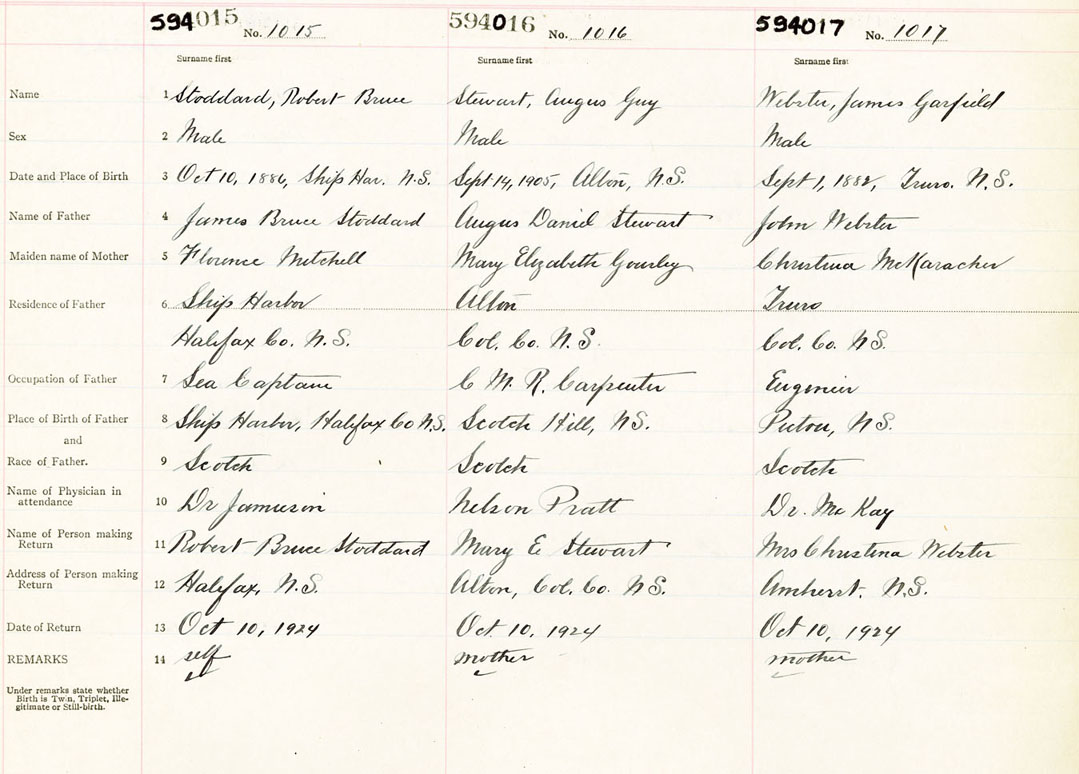 594015 No. 1015 594016 No. 1016 594017 No. 1017
Surname first Surname first Surname first
Name 1 Stoddard, Robert Bruce Stewart, Angus Guy Webster, James Garfield
Sex 2 Male Male Male
Date and Place of Birth 3 Oct 10, 1886, Ship Har. N.S. Sept. 14, 1905, Alton, N.S. Sept 1, 1882, Truro. N.S.
Name of Father 4 James Bruce Stoddard Angus Daniel Stewart John Webster
Maiden name of Mother 5 Florence Mitchell Mary Elizabeth Gourley Christina McKaracher
Residence of Father 6 Ship Harbor Alton Truro
Halifax Co. N.S. Col. Co. N.S. Col. Co. N.S.
Occupation of Father 7 Sea Captain C M. R. Carpenter Engineer
Place of Birth of Father 8 Ship Harbor, Halifax Co N.S. Scotch Hill, N.S. Pictou, N.S.
and
Race of Father. 9 Scotch Scotch Scotch
Name of Physician in
attendance 10 Dr Jamieson Nelson Pratt Dr. McKay
Name of Person making
Return 11 Robert Bruce Stoddard Mary E Stewart Mrs Christina Webster
Address of Person making
Return 12 Halifax, N.S. Alton, Col. Co. N.S. Amherst. N.S.
Date of Return 13 Oct 10, 1924 Oct. 10, 1924 Oct 10, 1924
REMARKS 14 self mother mother
Under remarks state whether
Birth is Twin, Triplet, Ille-
gitimate or Still-birth.